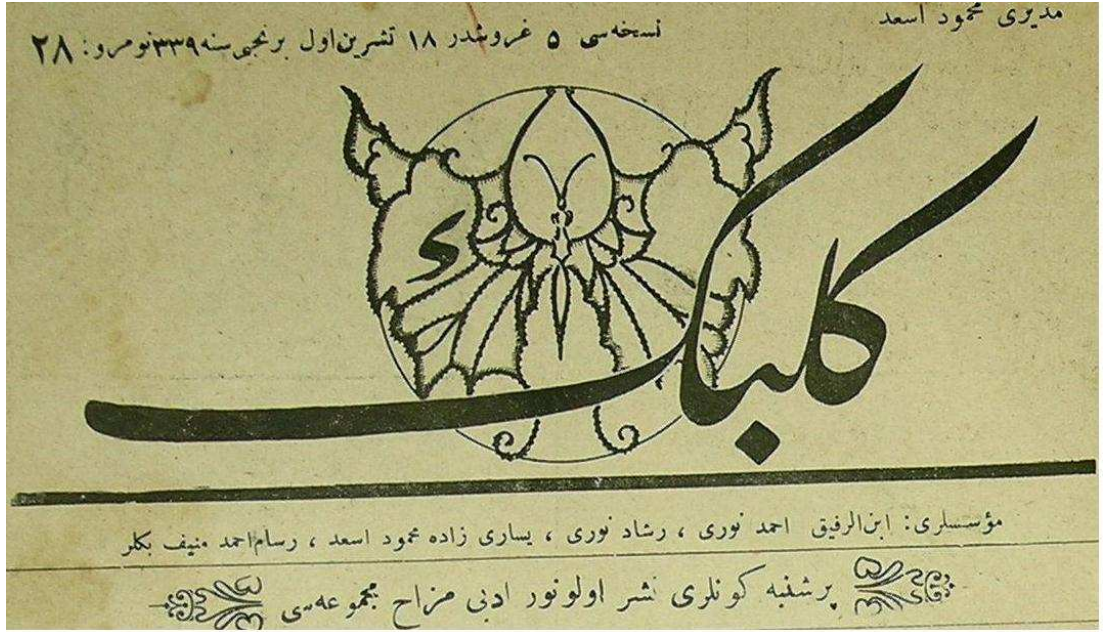 مدیری محمود اسعد
نسخه‌سی ۵ غروشدر ١٨ تشرین‌اول برنجی سنه ٣٣٩ نومرو: ٢٨
كلبك
مؤسسلری: ابن‌الرفیق احمد نوری ، رشاد نوری ، یساری زاده محمود اسعد ، رسام احمد منیف بكلر
پرشنبه كونلری نشر اولونور ادبی مزاح مجموعه‌سی